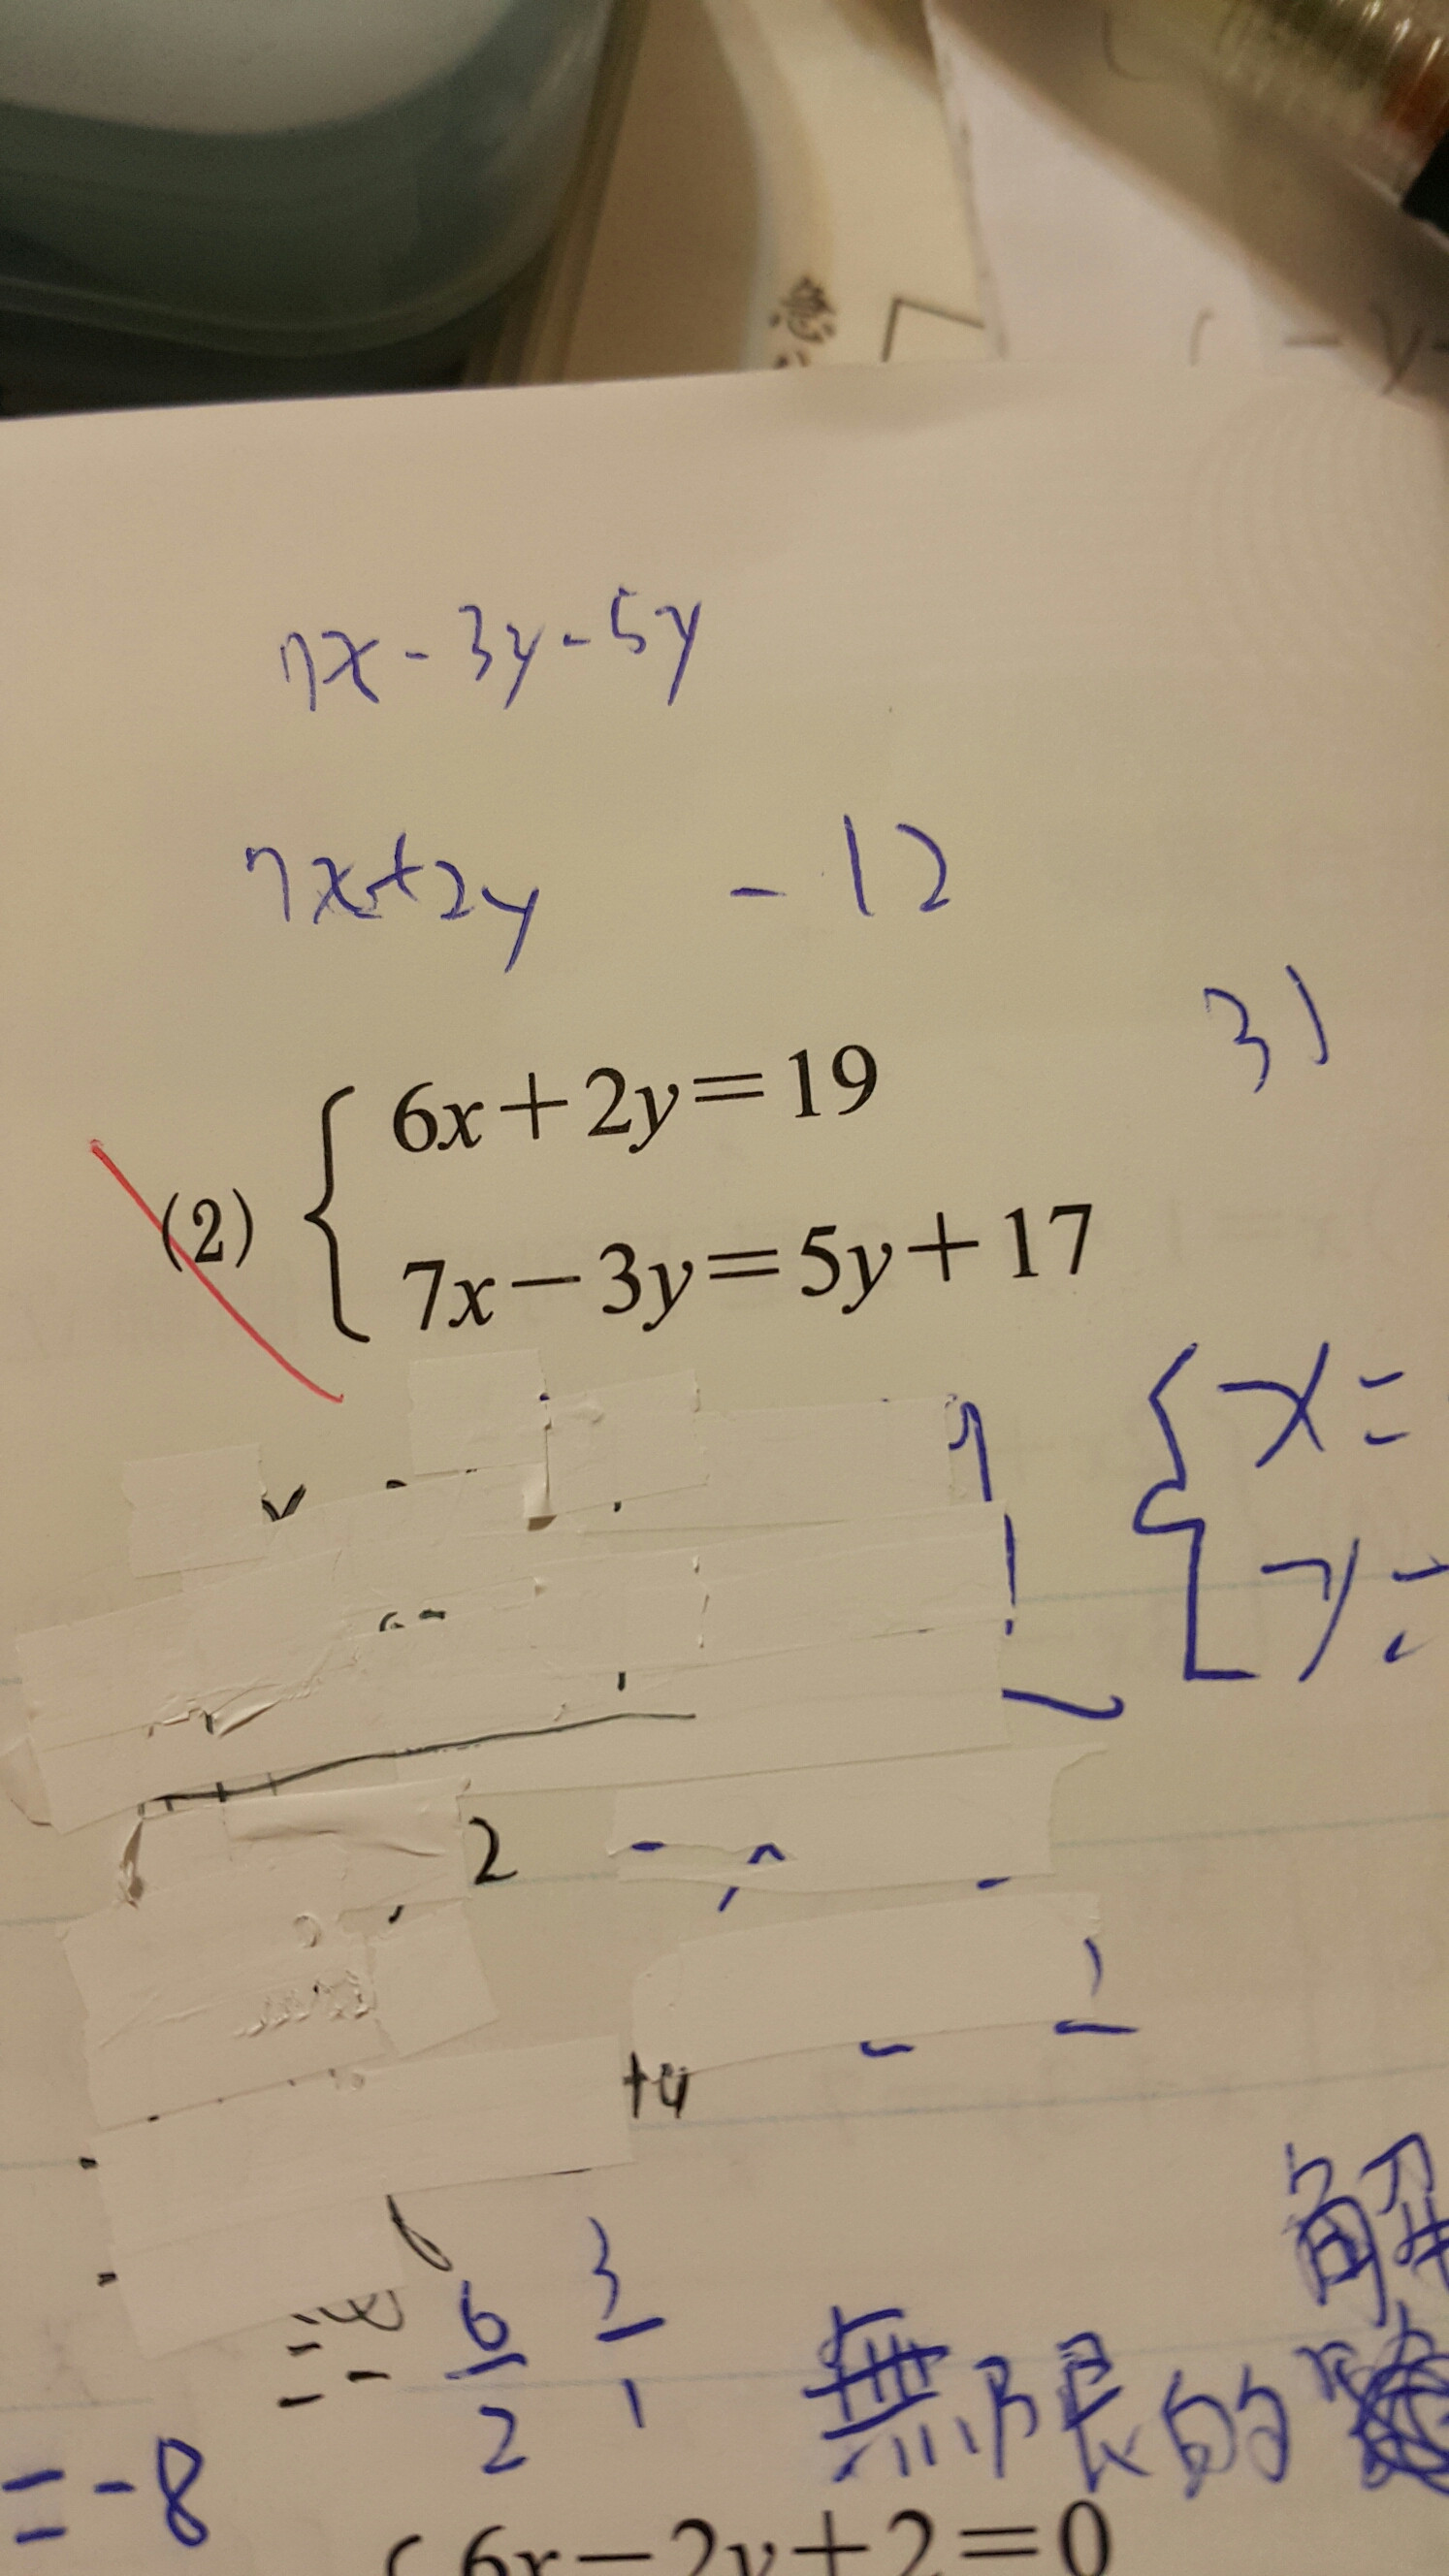 急
7x-3y-5y
7x+2y -12
31
(2) { 6x+2y=19
7x-3y=5y+17
{ x=
y=
2
+4
解
6/2 3/1
無限的
=-8
6x-2y+2=0